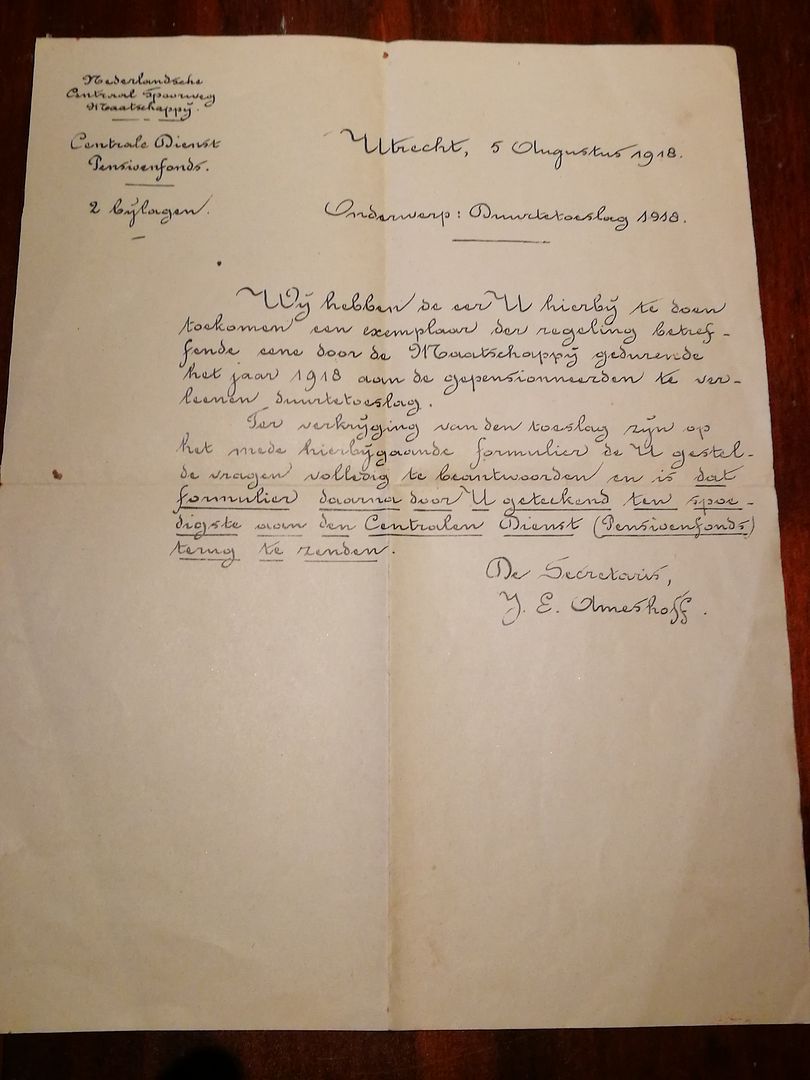 Nederlandsche
Centraal Spoorweg
Maatschappij.
Centrale Dienst
Pensioenfonds.
2 bijlagen.
Utrecht, 5 Augustus 1918.
Onderwerp: Duurtetoeslag 1918.
Wij hebben de eer U hierbij te doen
toekomen een exemplaar der regeling betref-
fende eene door de Maatschappij gedurende
het jaar 1918 aan de gepensionneerden te ver-
leenen duurtetoeslag.
Ter verkrijging van den toeslag zijn op
het mede hierbijgaande formulier de U gestel-
de vragen volledig te beantwoorden en is dat
formulier daarna door U geteekend ten spoe-
digste aan den Centralen Dienst (Pensioenfonds)
terug te zenden.
De Secretaris,
J. E. Ameshoff.